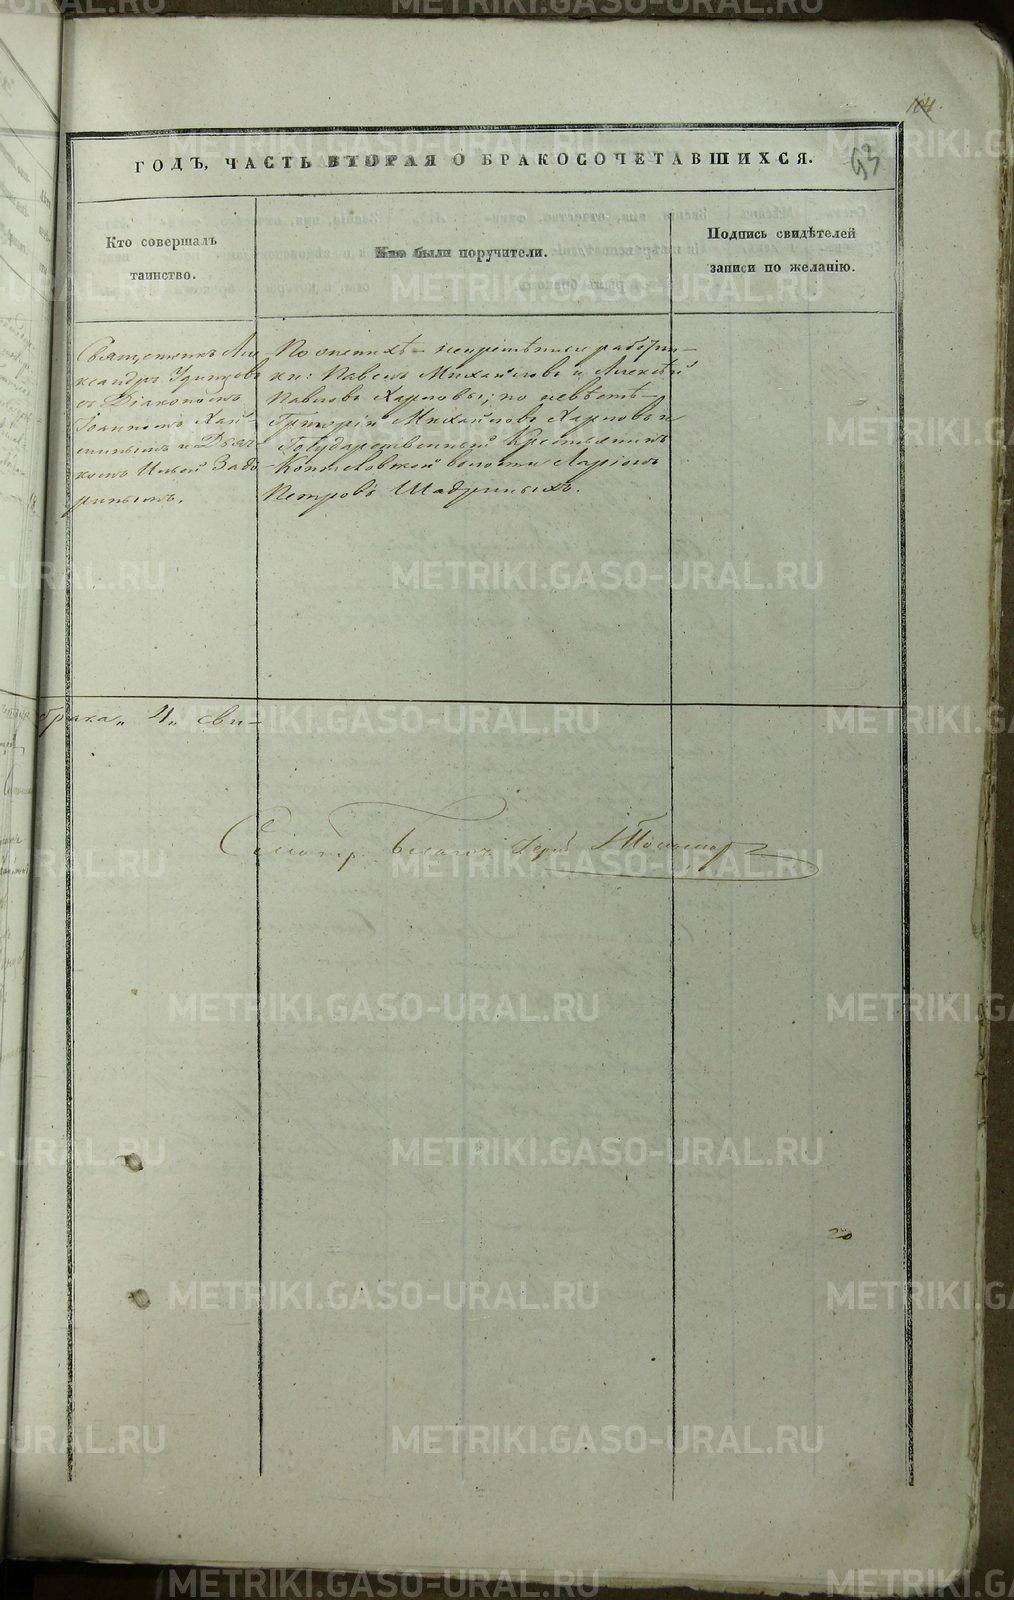 104.
93
ГОДЪ, ЧАСТЬ ВТОРАЯ О БРАКОСОЧЕТАВШИХСЯ.
Кто совершалъ
таинство.
Кто были поручители.
Подпись свидѣтелей
записи по желанію.
Священникъ Але
ксандръ Удинцовъ
съ Діакономъ
Іоанномъ
и Дьяч
комъ Ильей Задо
ринымъ.
По женихѣ – непремѣнные работни–
ки: Павелъ Михайловъ и Алексѣй
Павловъ Харловы; по невѣстѣ –
Григорій Михайловъ Харловъ и
Государственный Крестьянинъ
волости Ларіонъ
Петровъ Шадриныхъ.
брака „4„ сви–
20
METRIKI.GASO-URAL.RU